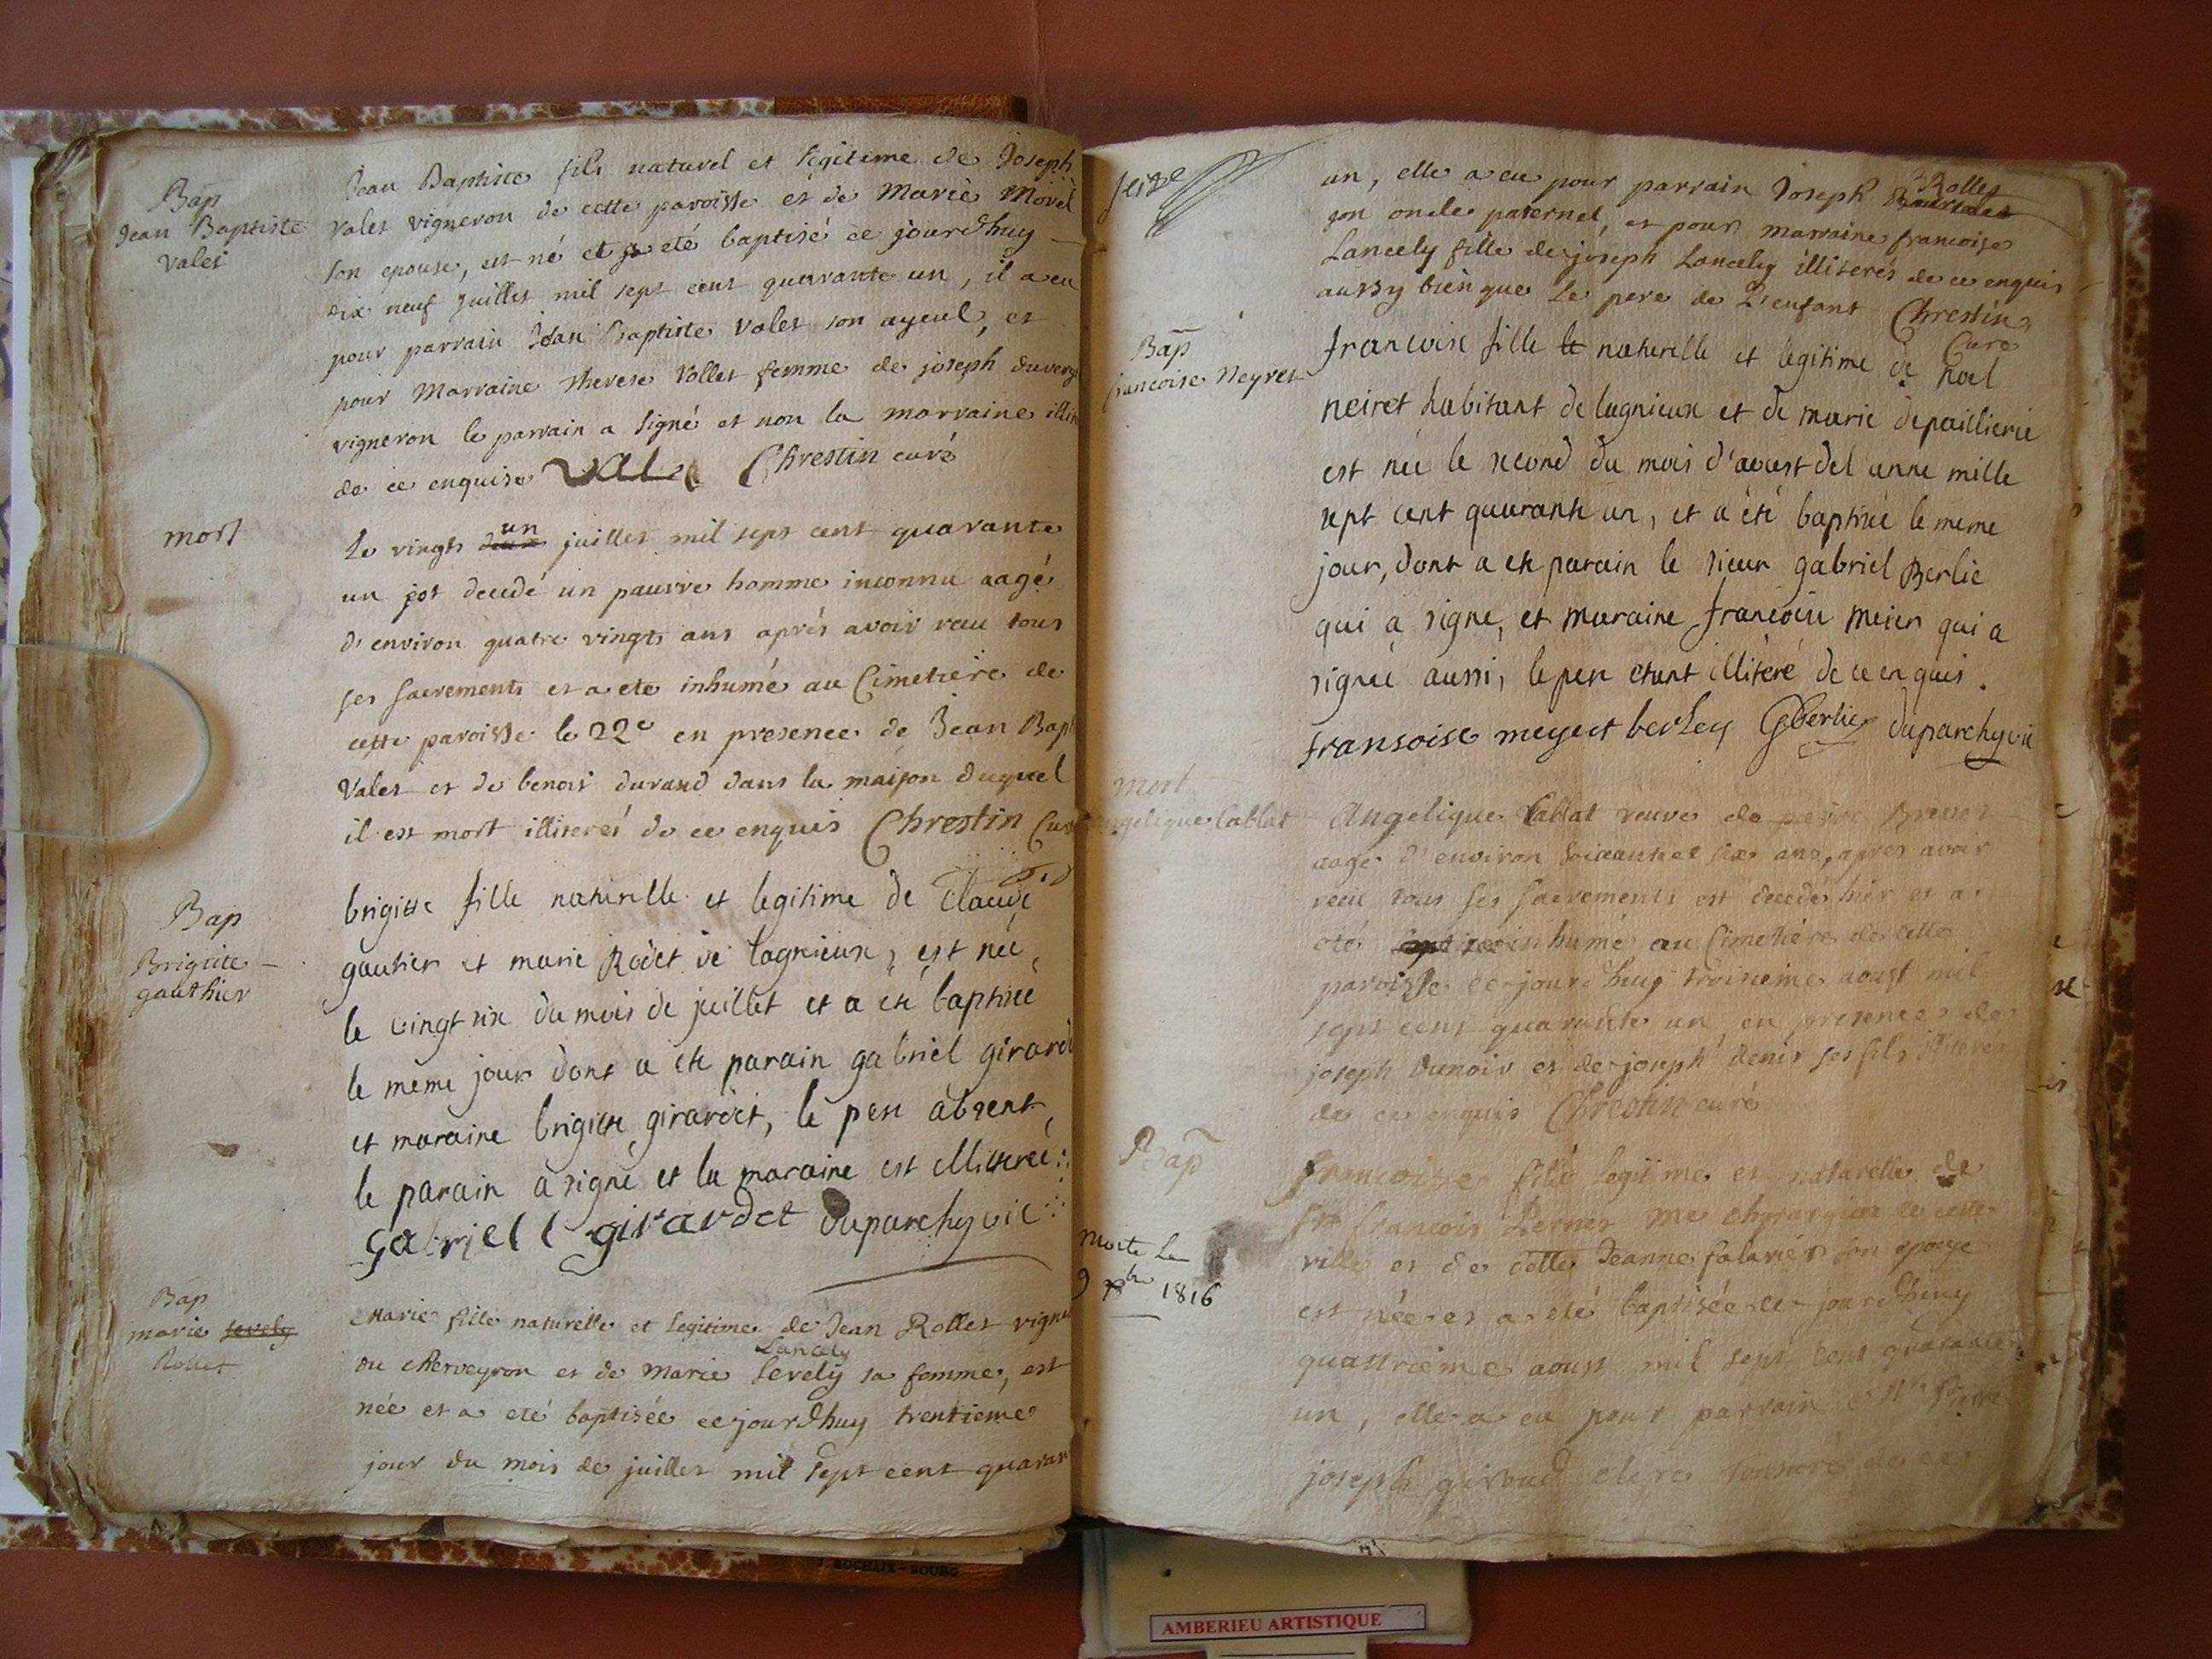 Bap
Jean Baptiste
Valet
Jean Baptiste fils naturel et legitime de Joseph
Valet vigneron de cette paroisse et de Marie Morel
son epouse, est né et a eté baptisé ce jourdhuy
dix neuf juillet mil sept cent quarante un, il a eu
pour parrain Jean Baptiste Valet son ayeul, et
pour Marraine therese Vollet femme de joseph
vigneron le parrain a signé et non la marraine
de ce enquise Valet Chrestin curé
mort
Le vingt un juillet mil sept cent quarante
un est decedé un pauvre homme inconnu aagé
d'environ quatre vingts ans aprés avoir receu tous
ses sacrements et a ete inhumé au Cimetiere de
cette paroisse le 22e en presence de Jean Bapt
Valet et de benoit durand dans la maison duquel
il est mort illiterés de ce enquis Chrestin Curé
Bap
Brigitte
gauthier
brigitte fille naturelle et legitime de Claude
gautier et marie Rodet de lagnieux, est neé
le vingt six du mois de juillet et a eté baptisee
le meme jour dont a ete parain gabriel girardet
et maraine brigitte girardet, le pere absent
le parain a signé et la maraine est illitereé
Gabriell girardet duparchy vic
Bap
marie sevely
Rollet
Marie fille naturelle et legitime de Jean Rollet vigne
du cherveyron et de Marie sevely Lancely sa femme, est
née et a eté baptisée ce jourdhuy trentieme
jour du mois de juillet mil sept cent quaran
seize
un, elle a eu pour parrain Joseph Rollet
son oncle paternel, et pour marraine francoise
Lancely fille de joseph Lancely illiterés de ce enquis
aussy bien que le pere de L'enfant Chrestin
Curé
Bap
francoise Neyret
francoise fille le naturelle et legitime de noel
neiret habitant de lagnieux et de marie depaillierie
est neé le second du mois d'aoust del anne mille
sept cent quarante un, et a été baptisée le meme
jour, dont a ete parain le sieur gabriel Berlie
qui a signe, et maraine francoise meier qui a
signé aussi, le pere etant illiteré de ce enquis.
fransoise meyert berley GBerlie duparchy vic
mort
angelique Cablat
Angelique Cablat veuve de Brevet
aage d'environ soixante et six ans, apres avoir
receu tous ses sacrements est decedé hier et a
eté inhumé au Cimetiere de cette
paroisse ce jourdhuy troisieme aoust mil
sept cent quarante un en presence de
joseph Dunoir et de joseph denis ses fils illiterés
de ce enquis Chrestin curé
Bap
morte Le
9 1816
francoise fille legitime et naturelle de
Sr francois Perner Me chyrurgien de cette
ville et de delle Jeanne son epouse
est née et a eté baptisée ce jourdhuy
quattrieme aoust mil sept cent quarante
un, elle a eu pour parrain Pierre
joseph giroud clerc tonsuré de ce
ROCHAIX - BOURG
AMBERIEU ARTISTIQUE